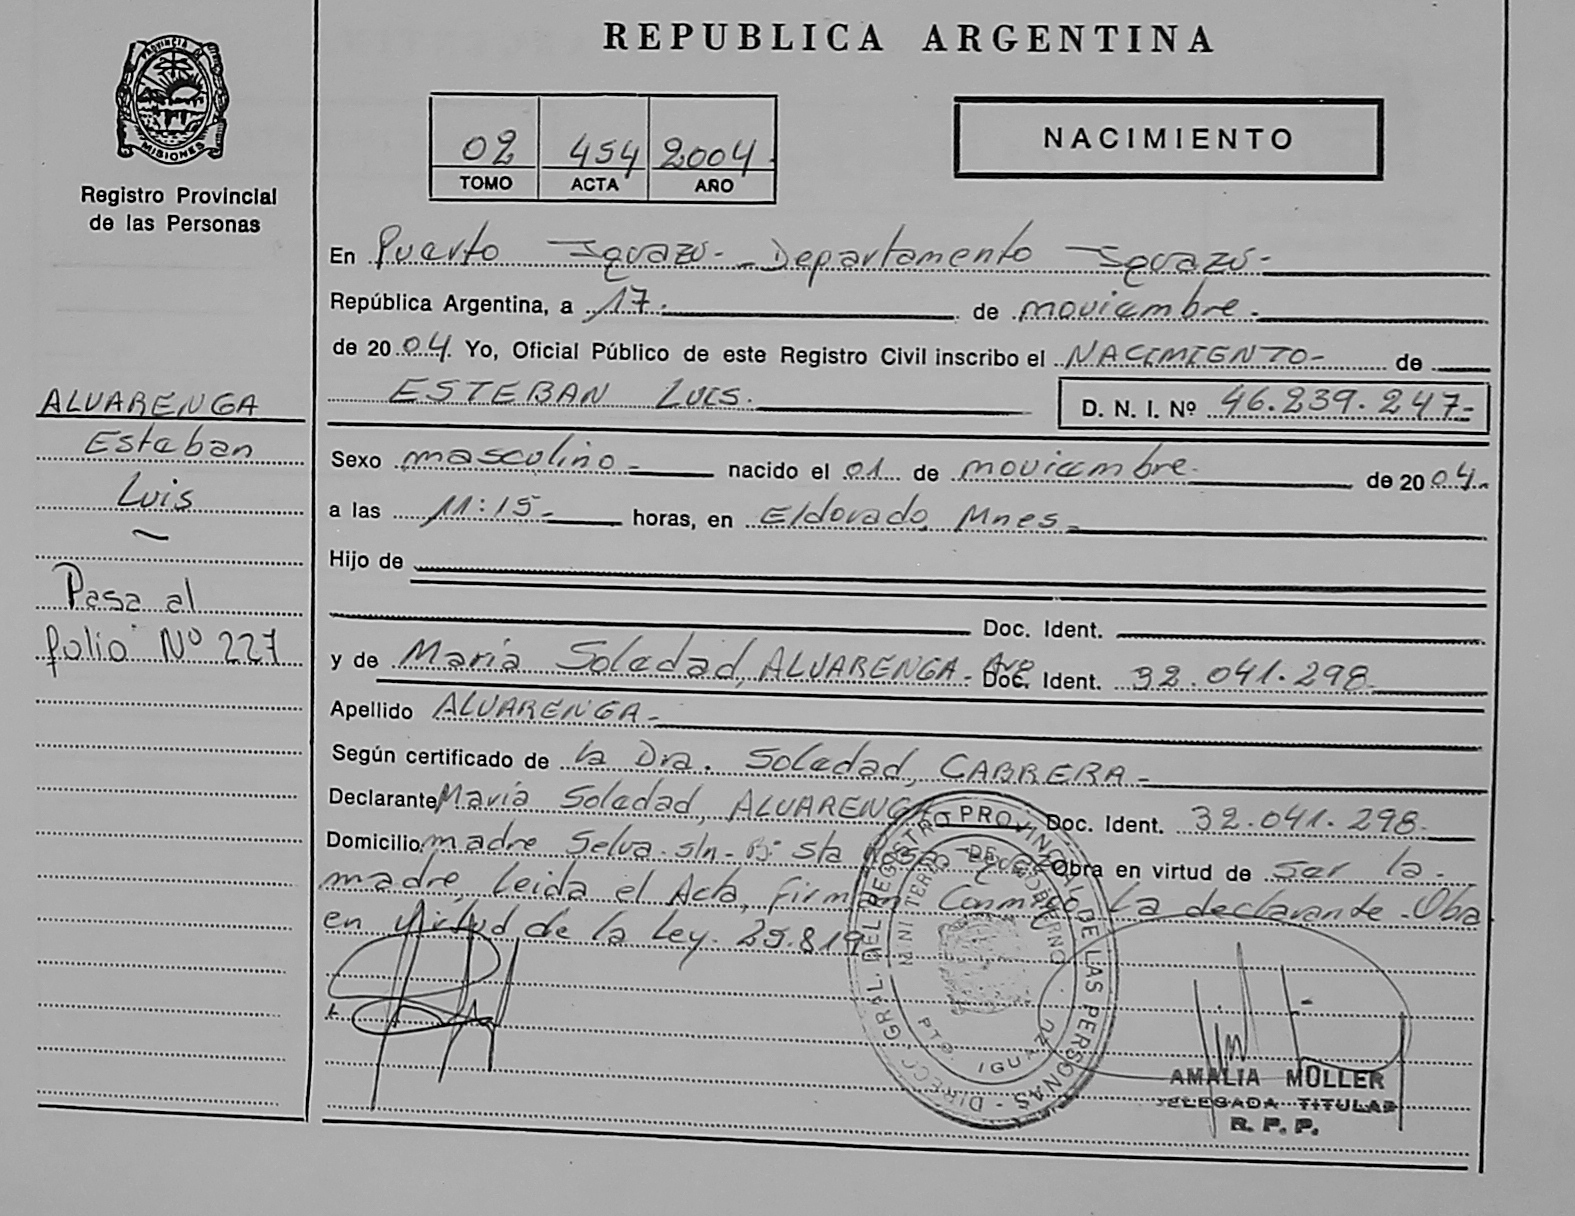 REPUBLICA ARGENTINA
PROVINCIA DE
MISIONES
Registro Provincial
de las Personas
02 454 2004
TOMO ACTA AÑO
NACIMIENTO
En Puerto Iguazú - Departamento Iguazú -
República Argentina, a 17 - de noviembre -
de 2004. Yo, Oficial Público de este Registro Civil inscribo el NACIMIENTO - de
ESTEBAN LUIS. D. N. I. Nº 46.239.247-
Sexo masculino - nacido el 01 de noviembre - de 2004.-
a las 11:15 - horas, en Eldorado, Mnes -
Hijo de
Doc. Ident.
y de María Soledad, ALVARENGA - Arg Doc. Ident. 32.041.298 -
Apellido ALVARENGA -
Según certificado de la Dra. Soledad, CABRERA -
Declarante María Soledad, ALVARENGA Doc. Ident. 32.041.298 -
Domicilio madre Selva s/n - Bº Sta Rosa Obra en virtud de ser la -
madre, Leida el Acta, Firman Conmigo La declarante - Oba
en virtud de la Ley. 25.819
ALVARENGA
Esteban
Luis
Pasa al
folio Nº 227
DIRECC. GRAL. DEL REGISTRO PROVINCIAL DE LAS PERSONAS -
MINISTERIO DE GOBIERNO
PTO. IGUAZU
AMALIA MOLLER
DELEGADA TITULAR
R. P. P.